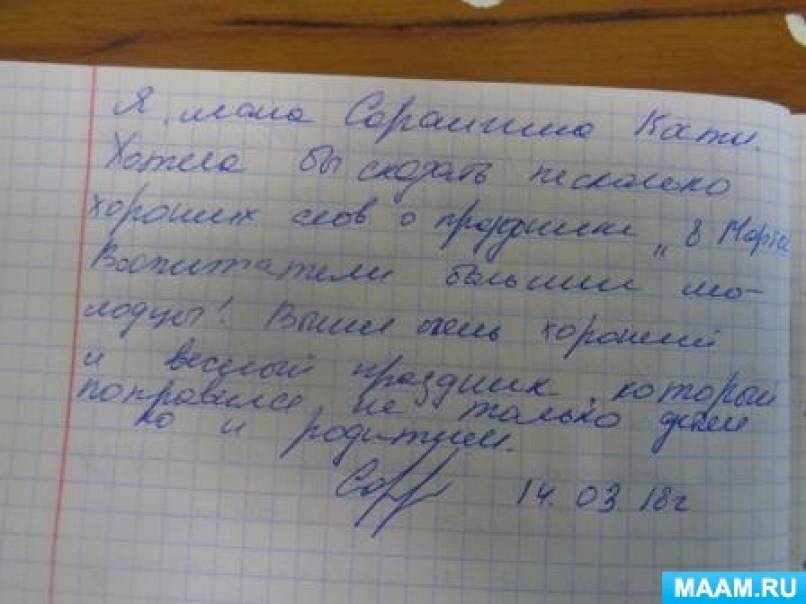 Я, мама Сараниной Кати.
Хотела бы сказать несколько
хороших слов о празднике „8 Марта
Воспитатели большие мо-
лодцы! Вышел очень хороший
и веселый праздник, который
понравился не только детям
но и родителям.
14.03.18г
MAAM.RU